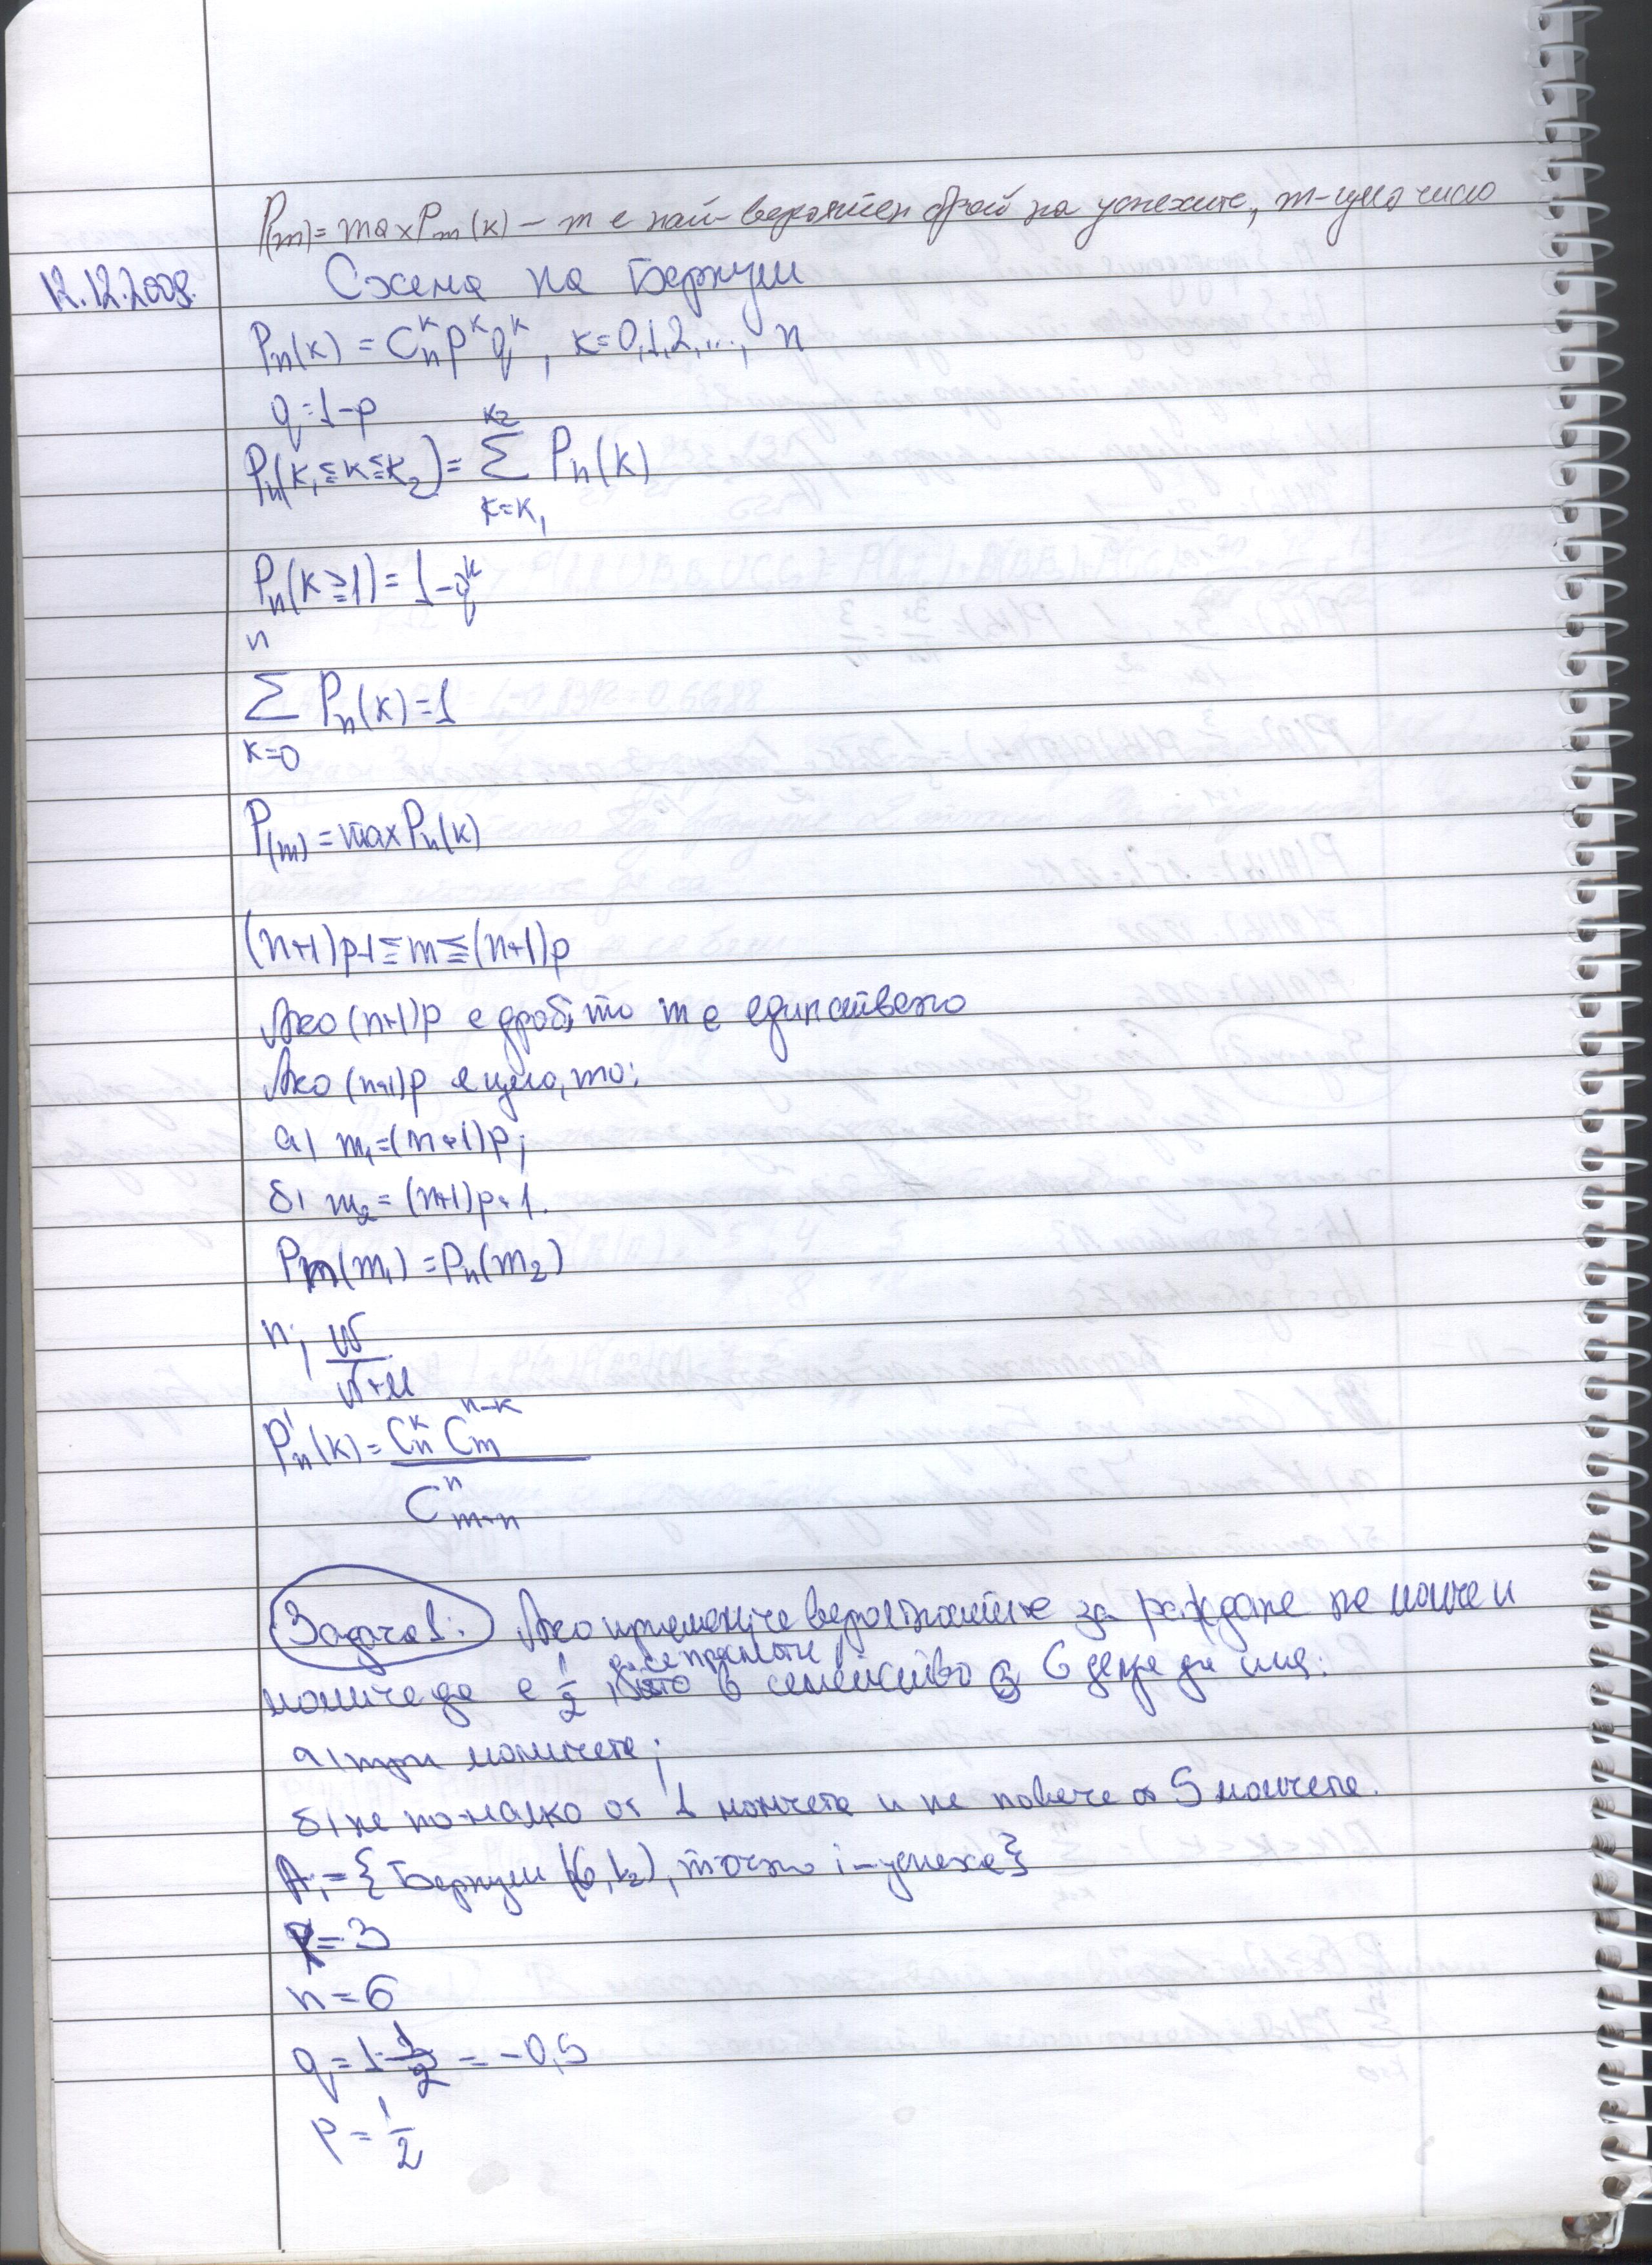 P(m) = max Pm(k) – m е най-вероятен брой на успехите, m-цяло число
12.12.2008. Схема на Бернули
Pn(k) = Cₙᵏ pᵏ qᵏ, k=0,1,2,..., n
q=1-p
Pn(k₁≤k≤k₂) = Σ Pn(k)
k₂
k=k₁
Pn(k≥1) = 1-qᵏ
n
Σ Pn(k)=1
k=0
P(m) = max Pn(k)
(n+1)p-1 ≤ m ≤ (n+1)p
Ако (n+1)p е дроб, то m е единствено
Ако (n+1)p е цяло, то:
а) m₁=(n+1)p;
б) m₂ = (n+1)p+1.
Pm(m₁) = Pn(m₂)
n;
P'n(k) = Cₙᵏ Cₘⁿ⁻ᵏ
Cⁿₘ₊ₙ
Задача 1: Ако приемем, че вероятностите за раждане на момче и
момиче да е 1/2, да се пресметне в семейство с 6 деца да има:
а) три момичета;
б) не по-малко от 1 момчета и не повече от 5 момчета.
Ai = {Бернули (6,1/2), точно i-успеха}
= 3
n = 6
q = 1-1/2 = -0,5
p = 1/2